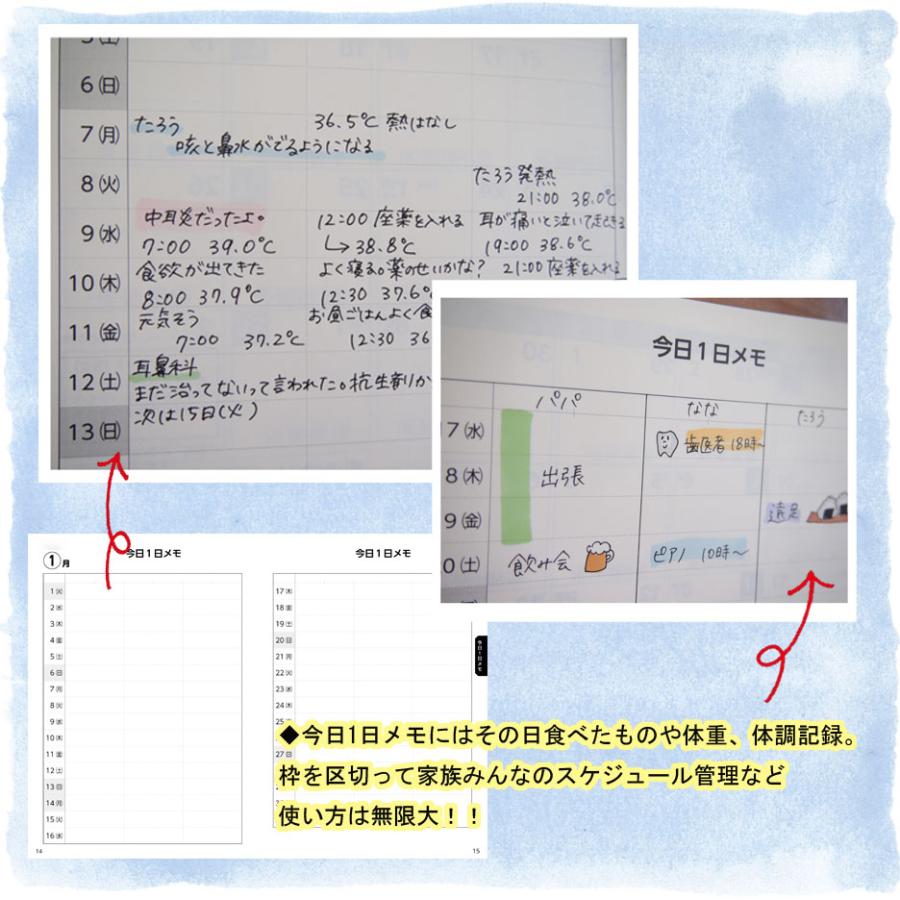 5(土)
6(日)
7(月) たろう 36.5℃ 熱はなし
咳と鼻水がでるようになる
8(火) たろう 発熱
21:00 38.0℃
9(水) 中耳炎だったよ。 12:00 座薬を入れる 耳が痛いと泣いて起きる
7:00 39.0℃ ↳38.8℃ 19:00 38.6℃
10(木) 食欲が出てきた よく寝る。薬のせいかな? 21:00 座薬を入れる
8:00 37.9℃ 12:30 37.6℃
11(金) 元気そう お昼ごはんよく食
7:00 37.2℃ 12:30 36
12(土) 耳鼻科
まだ治ってないって言われた。抗生剤りか
13(日) 次は15日(火)
今日1日メモ
パパ なな たろう
7(水) 歯医者 18時~
8(木) 出張
9(金) 遠足
0(土) 飲み会 ピアノ 10時~
1月 今日1日メモ
1(火)
2(水)
3(木)
4(金)
5(土)
6(日)
7(月)
8(火)
9(水)
10(木)
11(金)
12(土)
13(日)
14(月)
15(火)
16(水)
14
今日1日メモ
17(木)
18(金)
19(土)
20(日)
21(月)
22(火)
23(水)
24(木)
25
27(日)
15
今日1日メモ
◆今日1日メモにはその日食べたものや体重、体調記録。
枠を区切って家族みんなのスケジュール管理など
使い方は無限大!!